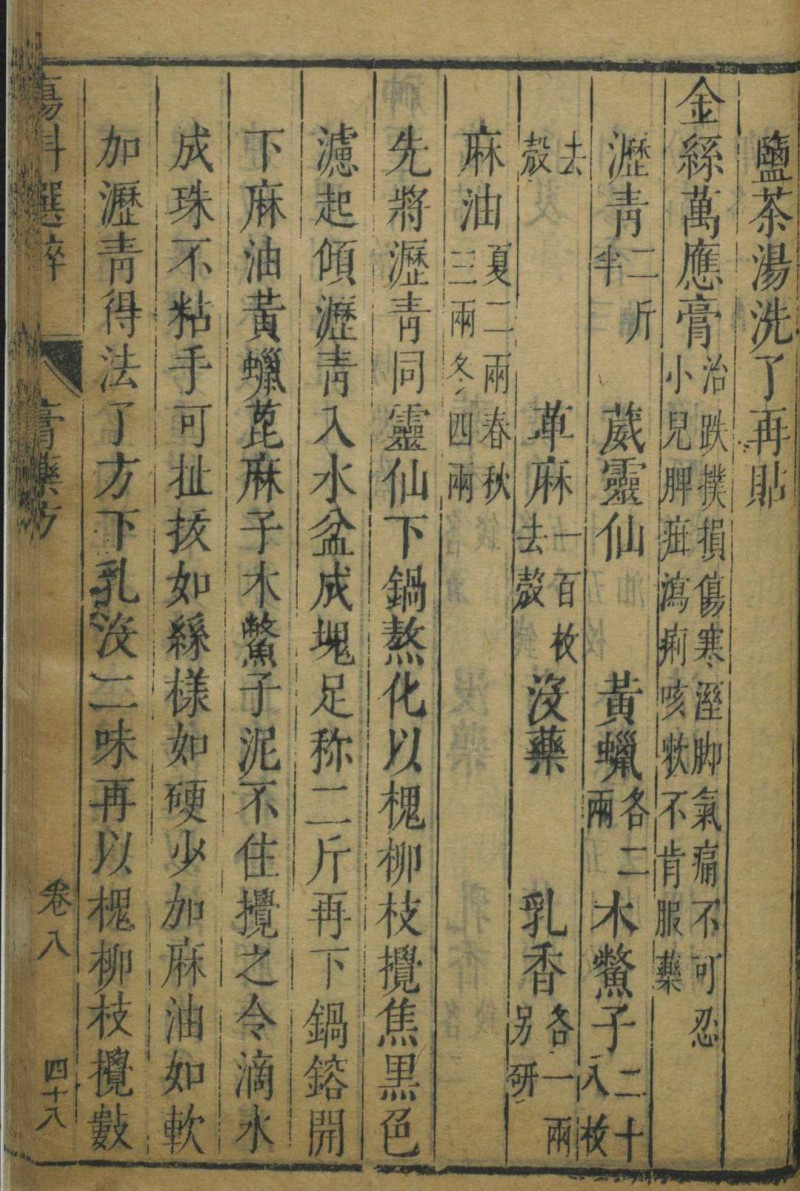 鹽茶湯洗了再貼
金絲萬應膏治跌撲損傷寒溼脚氣痛不可忍小兒脾疳瀉痢咳狀不肯服藥
瀝青二斤半　葳靈仙　黃蠟各二兩　木鱉子二十八枚
去殼　萆麻一百枚去殼　沒藥　乳香各一兩另研
麻油夏二兩春秋三兩冬四兩
先將瀝青同靈仙下鍋熬化以槐柳枝攪焦黑色
濾起傾瀝青入水盆成塊足称二斤再下鍋鎔開
下麻油黃蠟萞麻子木鱉子泥不住攪之令滴水
成珠不粘手可扯拔如絲樣如硬少加麻油如軟
加瀝青得法了方下乳沒二味再以槐柳枝攪數
瘍科選粹　膏藥方　卷八　四十八